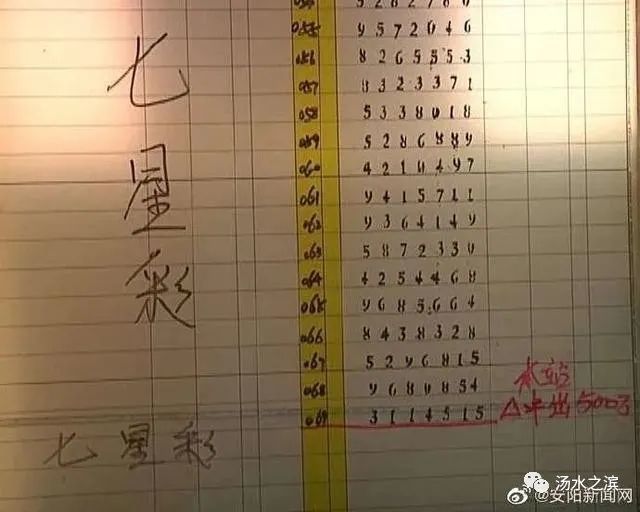 七星彩
055 9 5 7 2 0 4 6
056 8 2 6 5 5 5 3
057 8 3 2 3 3 7 1
058 5 3 3 8 0 1 8
059 5 2 8 6 8 8 9
060 4 2 1 0 4 9 7
061 9 4 1 5 7 1 1
062 9 3 6 4 1 4 9
063 5 8 7 2 3 3 0
064 4 2 5 4 4 6 8
065 9 6 8 5 6 6 4
066 8 4 3 8 3 2 8
067 5 2 9 6 8 1 5
068 9 6 8 0 8 5 4
069 3 1 1 4 5 1 5
本站
中出500万
七星彩
汤水之滨
@安阳新闻网